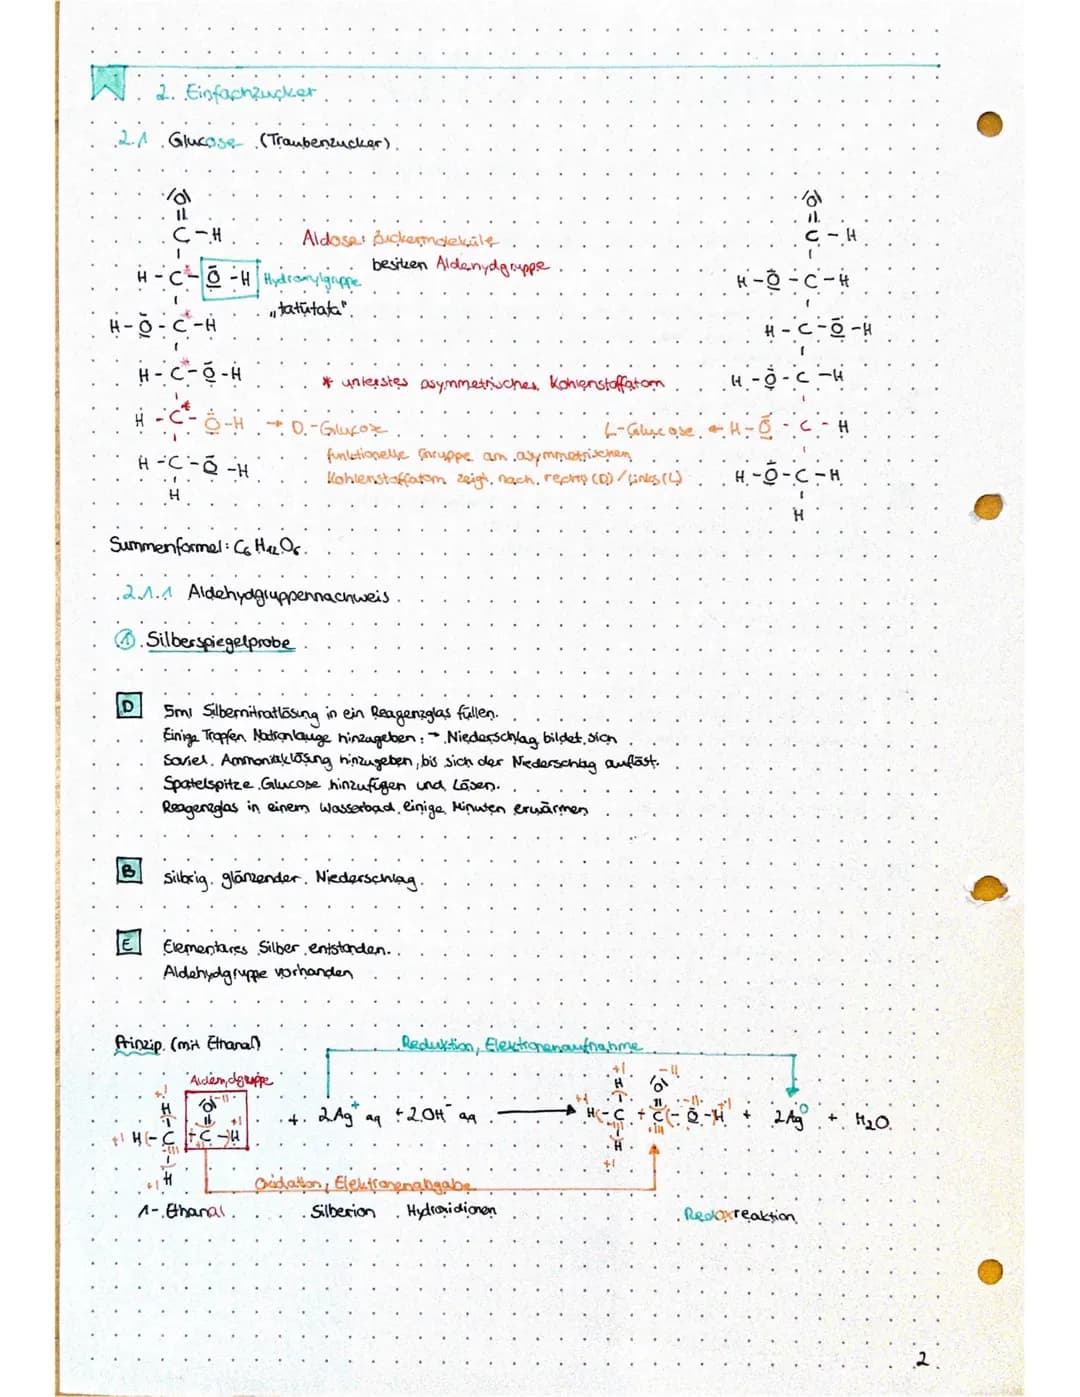 2. Einfachzucker
2.1 Glucose (Traubenzucker)
Aldose: Zuckermoleküle
besitzen Aldehydgruppe
Hydroxylgruppe
„tatütata"
* unterstes asymmetrisches Kohlenstoffatom
→ D-Glucose
L-Glucose ←
funktionelle Gruppe am asymmetrischen
Kohlenstoffatom zeigt nach rechts (D) / links (L)
Summenformel: C₆H₁₂O₆
2.1.1 Aldehydgruppennachweis
① Silberspiegelprobe
D 5ml Silbernitratlösung in ein Reagenzglas füllen.
Einige Tropfen Natronlauge hinzugeben: → Niederschlag bildet sich
Soviel Ammoniaklösung hinzugeben, bis sich der Niederschlag auflöst.
Spatelspitze Glucose hinzufügen und Lösen.
Reagenzglas in einem Wasserbad einige Minuten erwärmen
B silbrig glänzender Niederschlag.
E Elementares Silber entstanden.
Aldehydgruppe vorhanden
Prinzip (mit Ethanal)
Reduktion, Elektronenaufnahme
Aldehydgruppe
+ 2Ag⁺ aq + 2OH⁻ aq → + 2Ag⁰ + H₂O
Oxidation, Elektronenabgabe
1-Ethanal Silberion Hydroxidionen Redoxreaktion
2